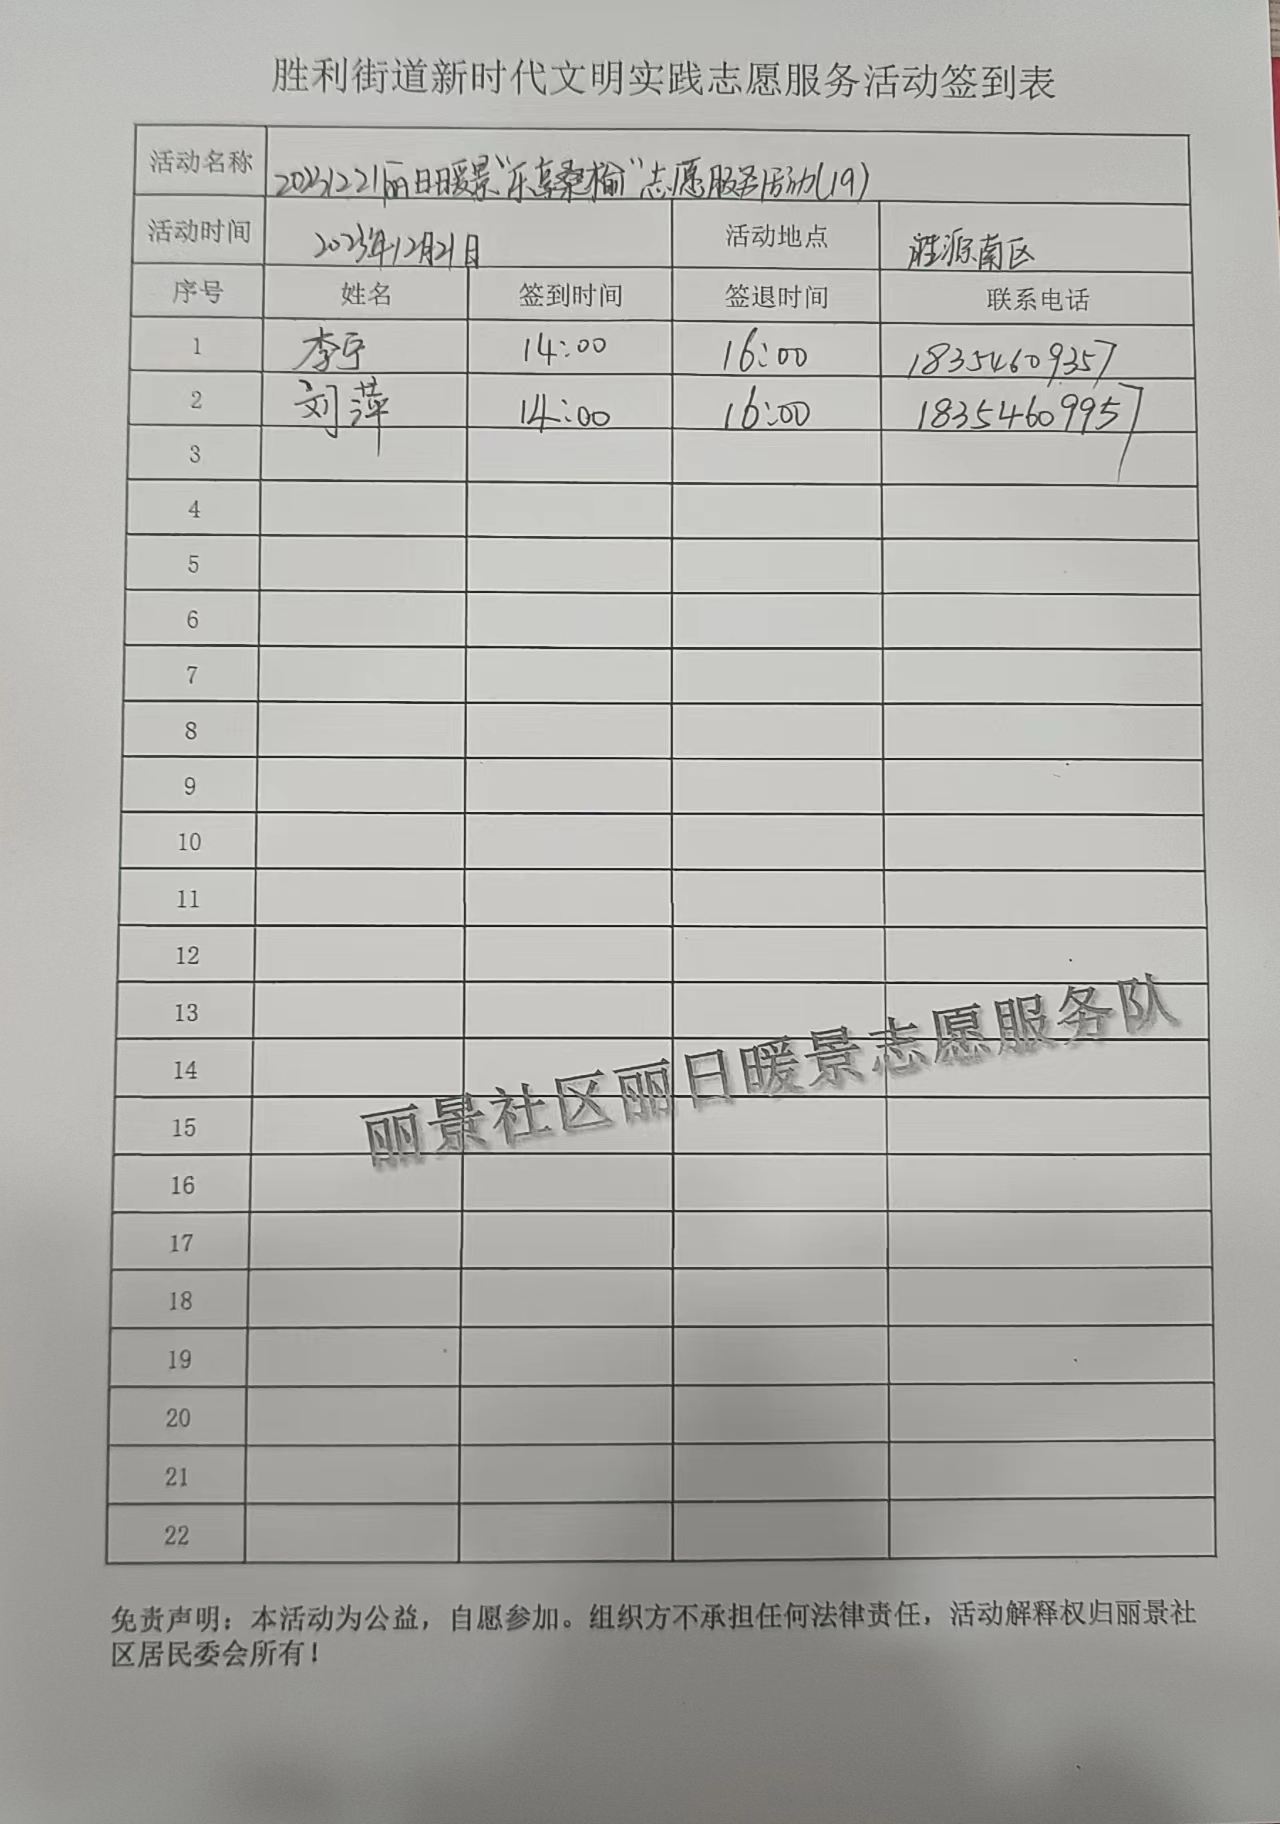 胜利街道新时代文明实践志愿服务活动签到表
活动名称 20231221丽日暖景“乐享桑榆”志愿服务活动(19)
活动时间 2023年12月21日 活动地点 胜源南区
序号 姓名 签到时间 签退时间 联系电话
1 李宁 14:00 16:00 18354609357
2 刘萍 14:00 16:00 18354609957
3
4
5
6
7
8
9
10
11
12
13
14
15
16
17
18
19
20
21
22
丽景社区丽日暖景志愿服务队
免责声明：本活动为公益，自愿参加。组织方不承担任何法律责任，活动解释权归丽景社
区居民委会所有！